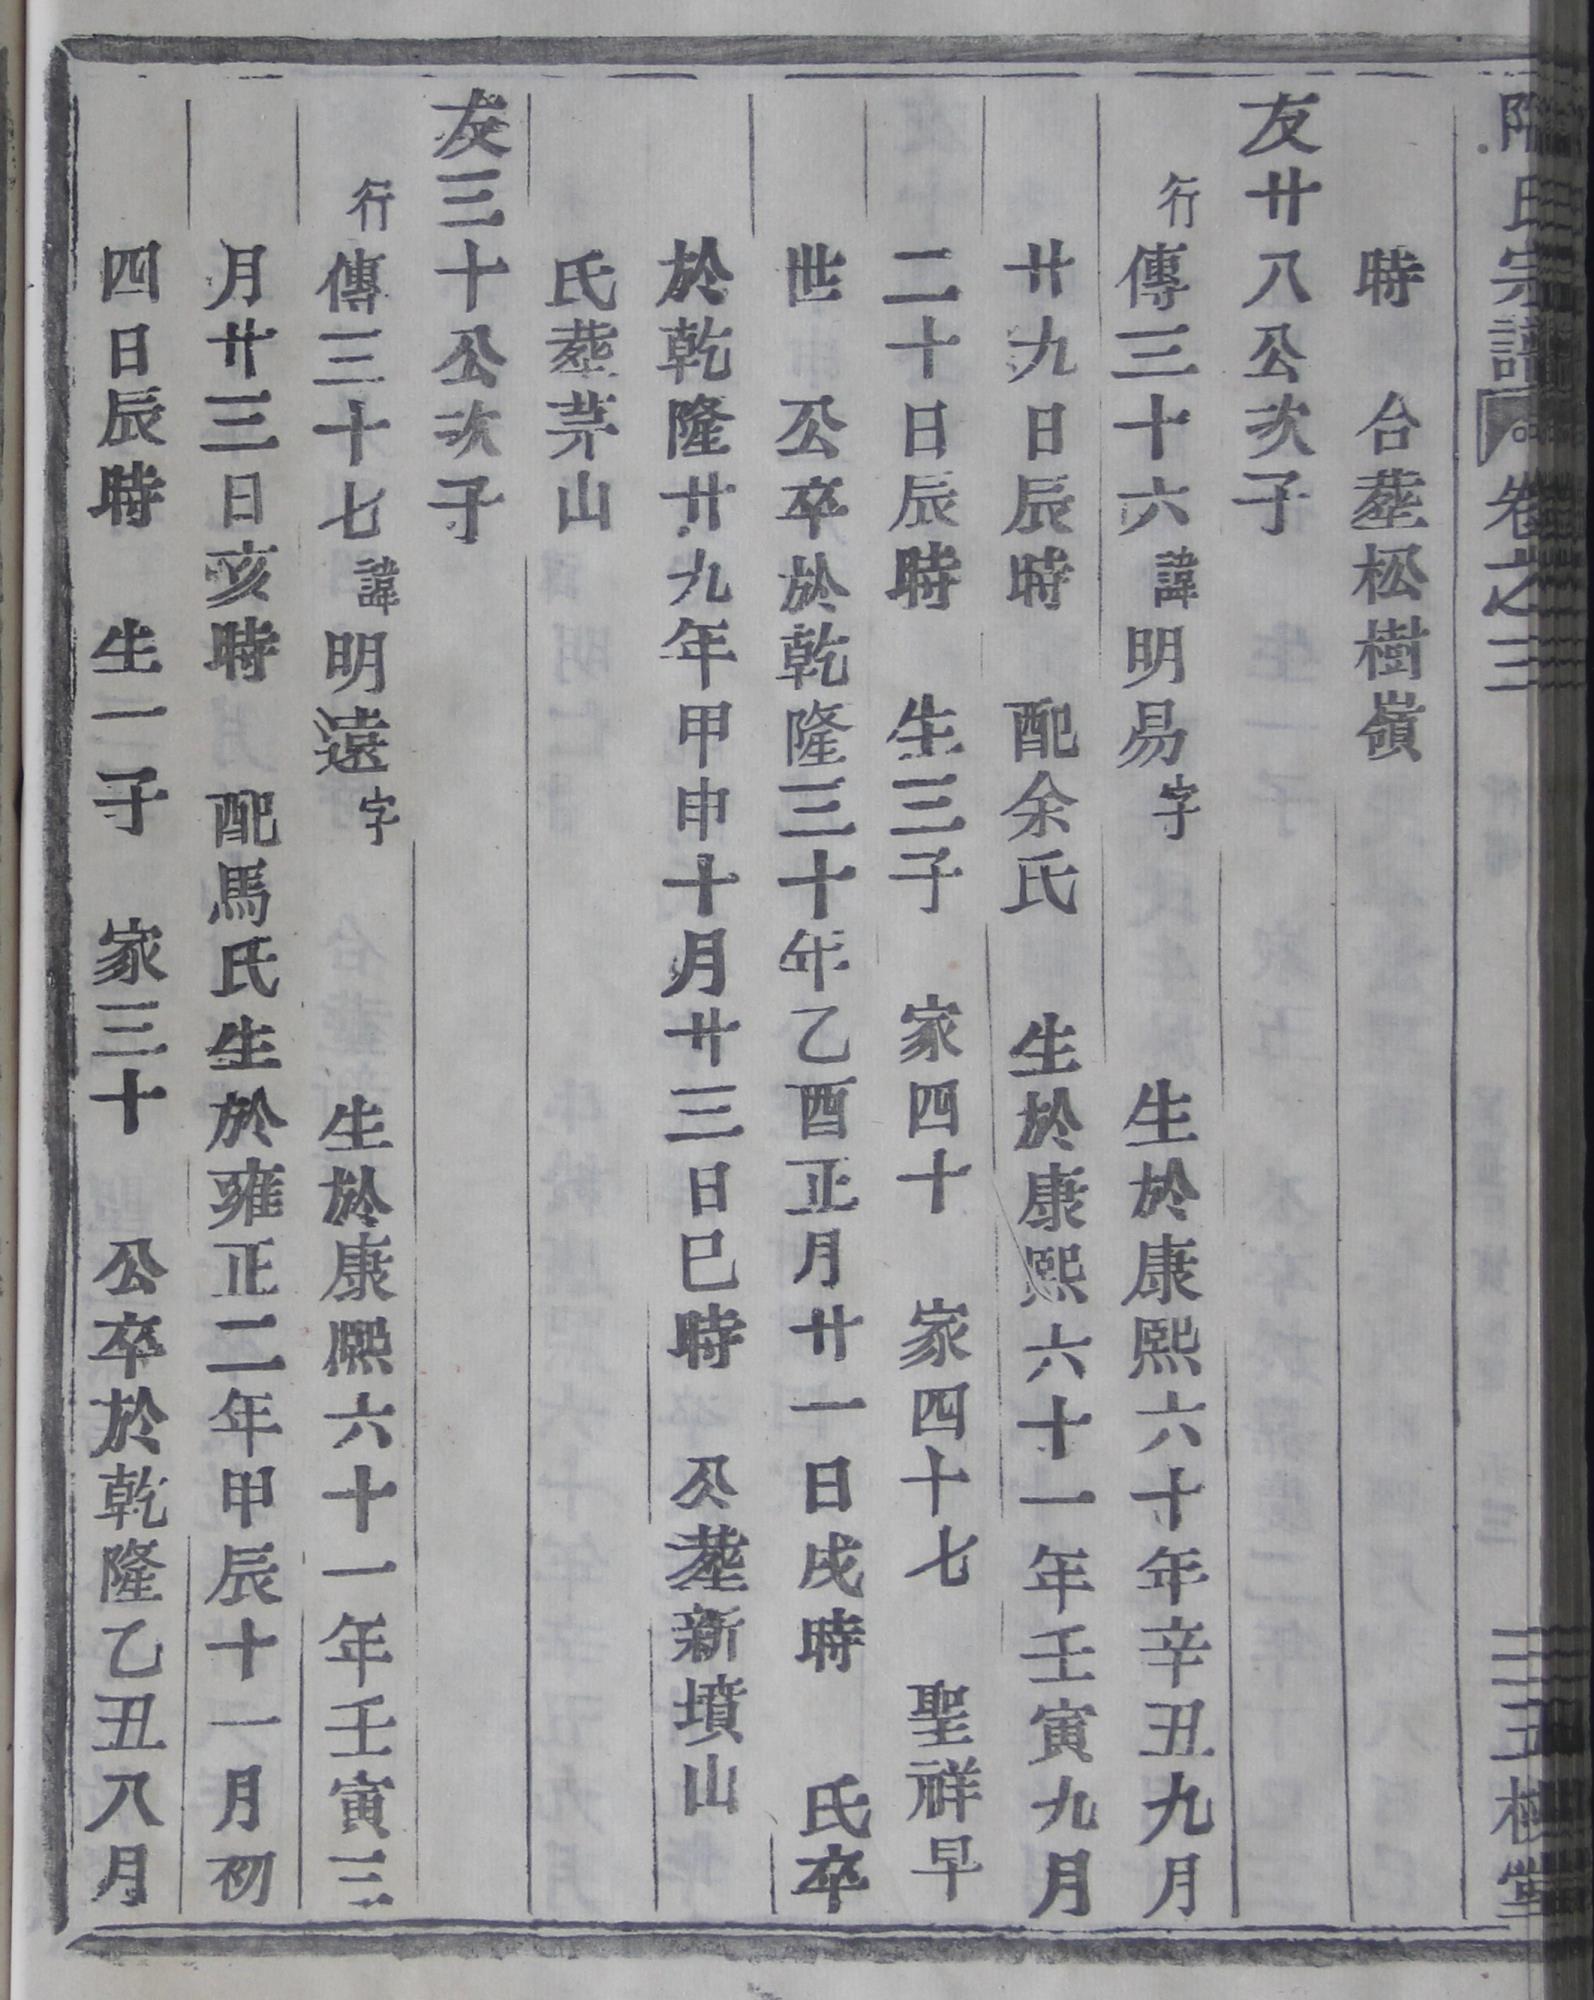 氏宗譜 卷之三 三五 堂
時 台塟松樹嶺
友廿八公次子
行傳三十六諱明易字 生於康熙六十年辛丑九月
廿九日辰時 配余氏 生於康熙六十一年壬寅九月
二十日辰時 生三子 家四十 家四十七 聖祥早
世 公卒於乾隆三十年乙酉正月廿一日戌時 氏卒
於乾隆廿九年甲申十月廿三日巳時 公塟新墳山
氏塟茅山
友三十公次子
行傳三十七諱明遠字 生於康熙六十一年壬寅三
月廿三日亥時 配馬氏生於雍正二年甲辰十一月初
四日辰時 生一子 家三十 公卒於乾隆乙丑八月